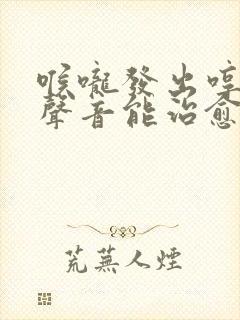 喉嚨發出哼
聲音能治愈
荒蕪人煙